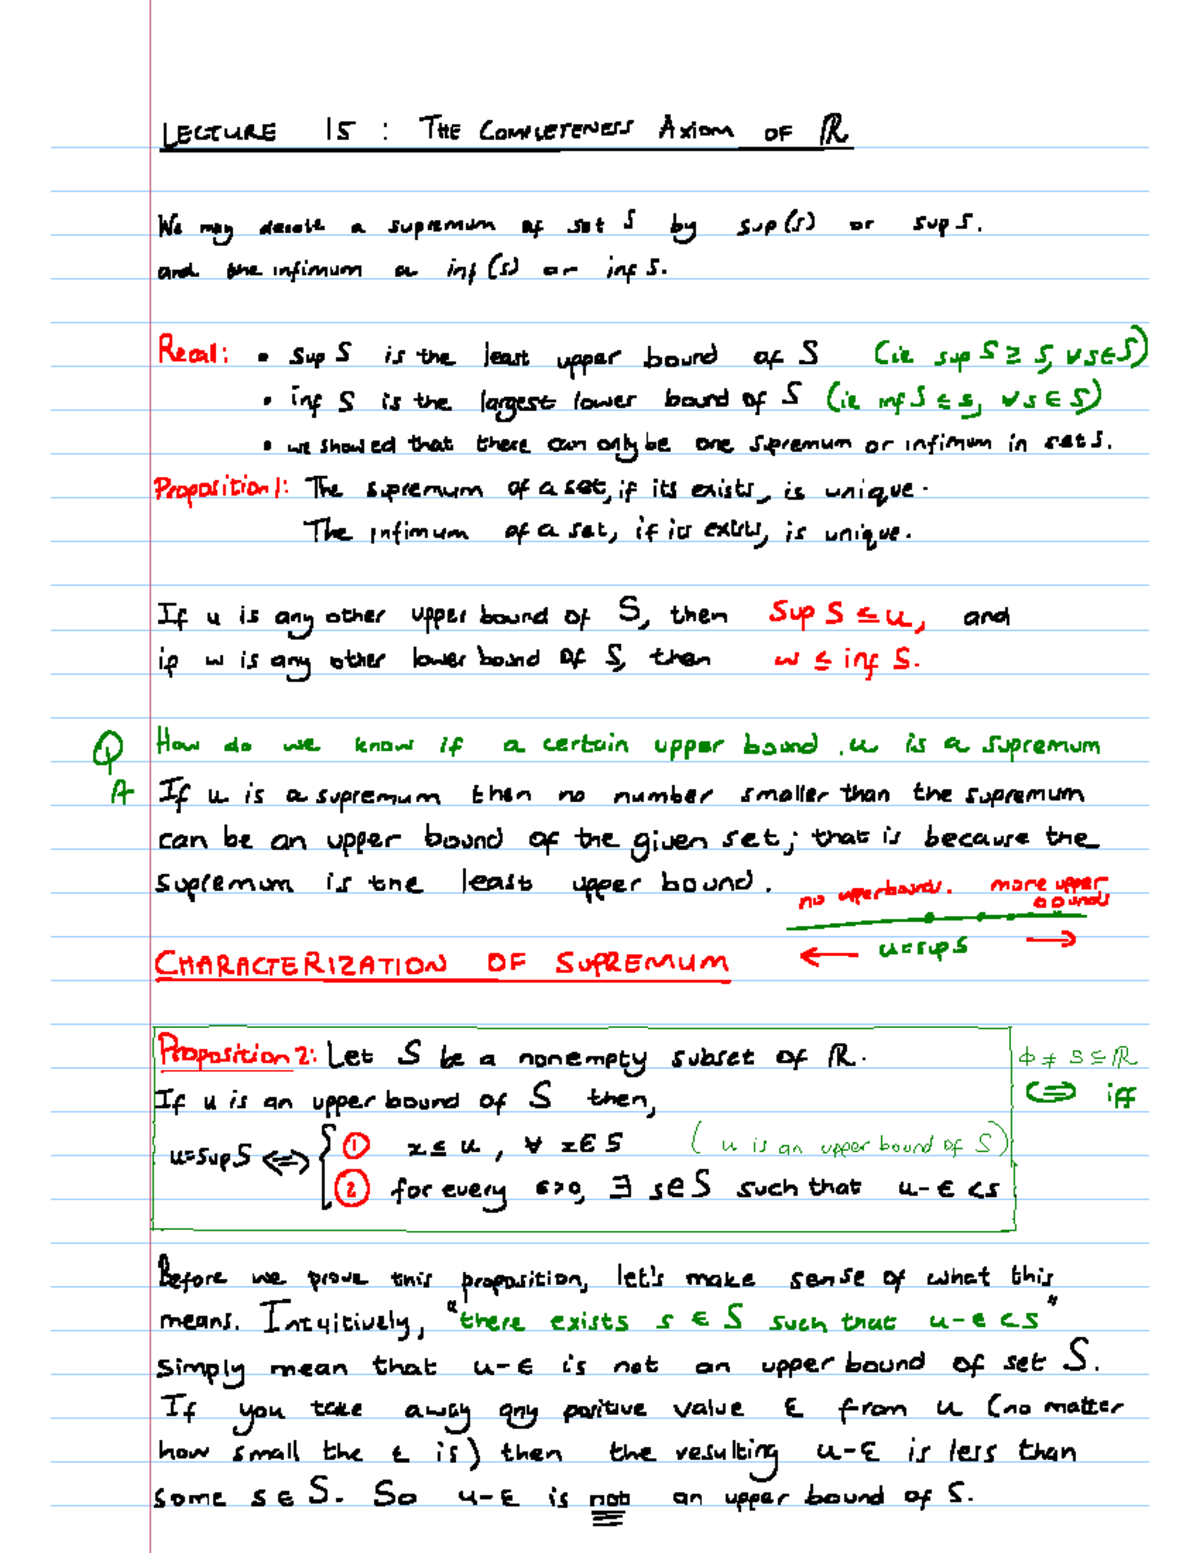 LECTURE 15 : THE COMPLETENESS AXIOM OF ℝ
We may denote a supremum of set S by sup(S) or sup S.
and the infimum a inf(S) or inf S.
Recall: • Sup S is the least upper bound of S (ie sup S ≥ s, ∀s∈S)
• inf S is the largest lower bound of S (ie inf S ≤ s, ∀s∈S)
• we showed that there can only be one supremum or infimum in set S.
Proposition 1: The supremum of a set, if its exists, is unique.
The infimum of a set, if its exists, is unique.
If u is any other upper bound of S, then Sup S ≤ u, and
if w is any other lower bound of S, then w ≤ inf S.
Q How do we know if a certain upper bound u is a supremum
A If u is a supremum then no number smaller than the supremum
can be an upper bound of the given set; that is because the
supremum is the least upper bound.
no upperbounds. more upper bounds
u=sup S
CHARACTERIZATION OF SUPREMUM
Proposition 2: Let S be a nonempty subset of ℝ. ϕ ≠ S ⊆ ℝ
If u is an upper bound of S then, ⇔ iff
u=Sup S ⇔ { ① x ≤ u, ∀ x∈S (u is an upper bound of S)
② for every ε>0, ∃ s∈S such that u-ε<s
Before we prove this proposition, let's make sense of what this
means. Intuitively, "there exists s ∈ S such that u-ε<s"
Simply mean that u-ε is not an upper bound of set S.
If you take away any positive value ε from u (no matter
how small the ε is) then the resulting u-ε is less than
some s∈S. So u-ε is not an upper bound of S.